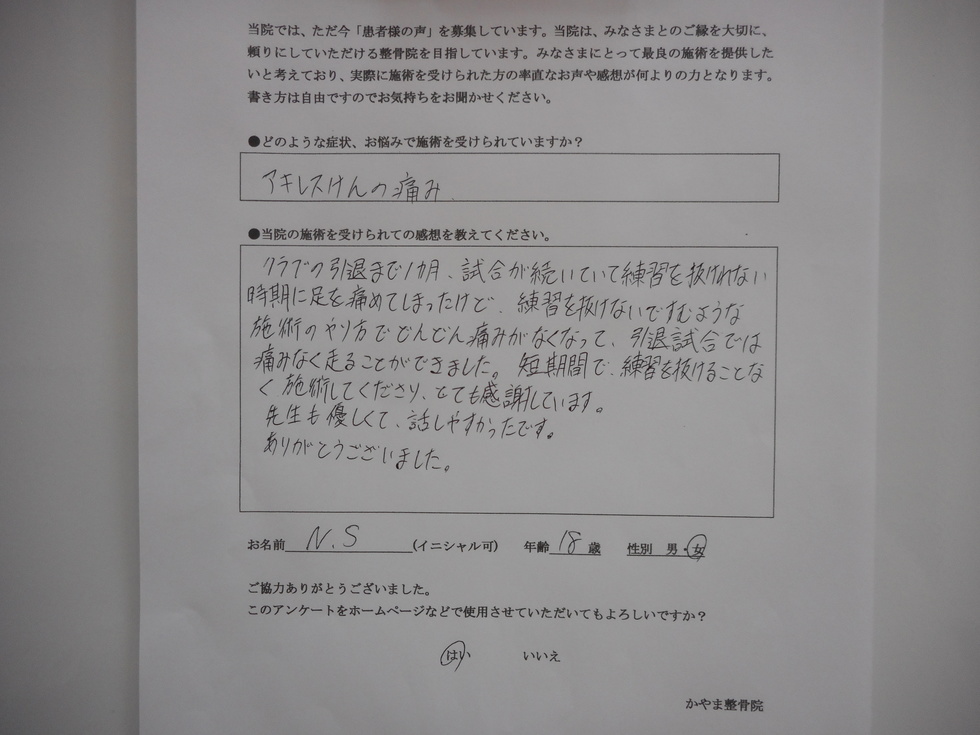 当院では、ただ今「患者様の声」を募集しています。当院は、みなさまとのご縁を大切に、
頼りにしていただける整骨院を目指しています。みなさまにとって最良の施術を提供した
いと考えており、実際に施術を受けられた方の率直なお声や感想が何よりの力となります。
書き方は自由ですのでお気持ちをお聞かせください。
●どのような症状、お悩みで施術を受けられていますか？
アキレスけんの痛み
●当院の施術を受けられての感想を教えてください。
クラブの引退まで1カ月、試合が続いていて練習を抜けれない
時期に足を痛めてしまったけど、練習を抜けないですむような
施術のやり方でどんどん痛みがなくなって、引退試合では
痛みなく走ることができました。短期間で、練習を抜けることな
く施術してくださり、とても感謝しています。
先生も優しくて、話しやすかったです。
ありがとうございました。
お名前 N.S (イニシャル可) 年齢 18 歳 性別 男・女
ご協力ありがとうございました。
このアンケートをホームページなどで使用させていただいてもよろしいですか？
はい いいえ
かやま整骨院